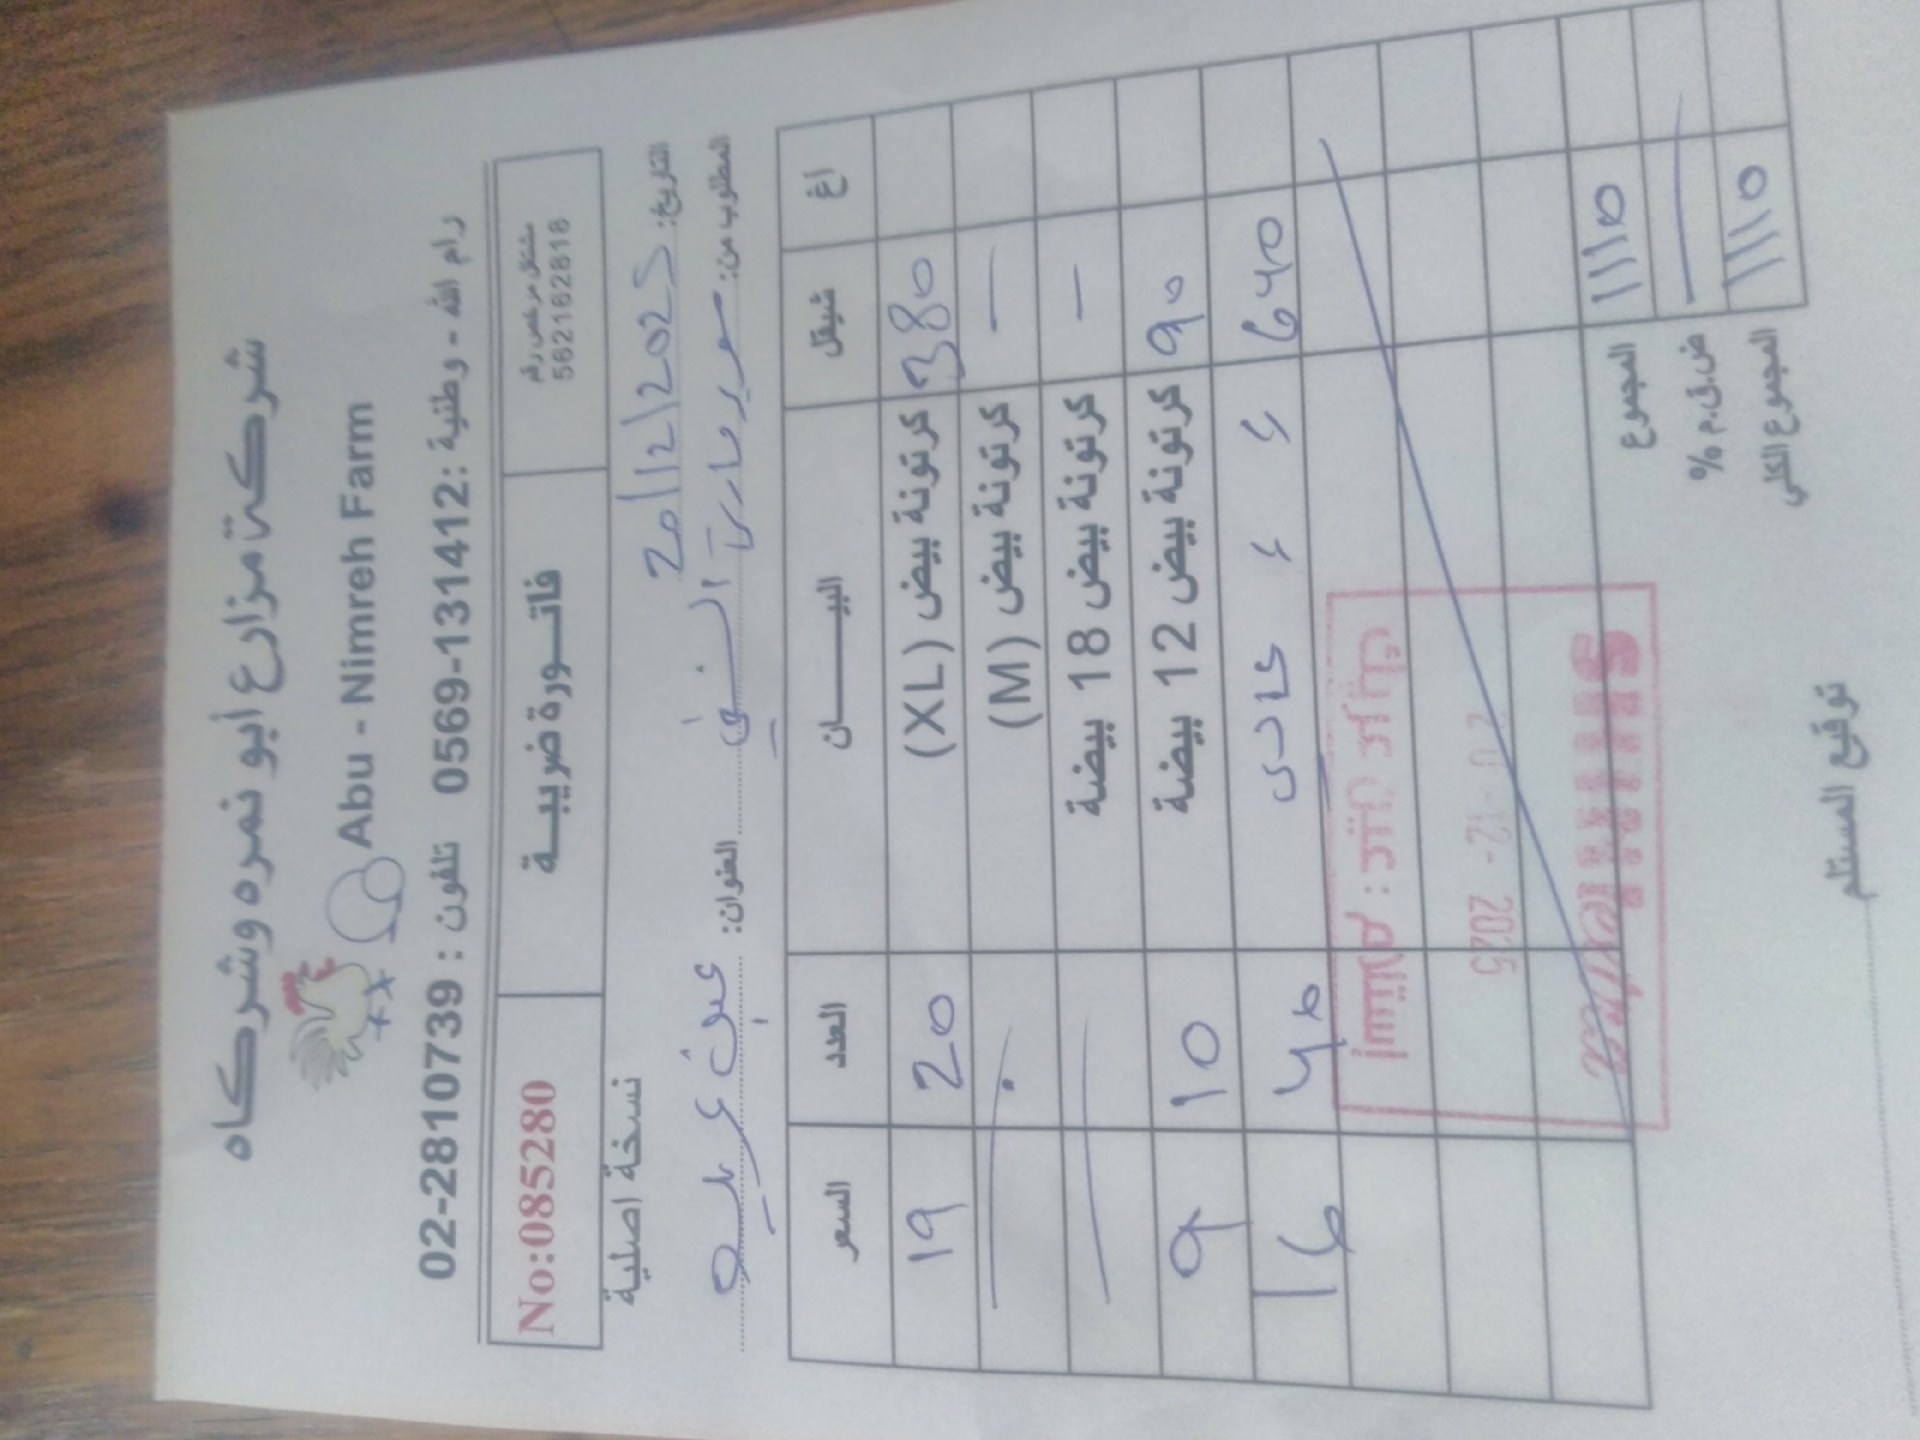 شركة مزارع أبو نمره وشركاه
Abu - Nimreh Farm
رام الله - وطنية : 0569-131412 تلفون : 02-2810739
مشتغل مرخص رقم
562162818
فاتورة ضريبية
No:085280
نسخة اصلية
التاريخ: 20/12/2025
المطلوب من: سوبر ماركت العنوان: عين عريك
أغ شيقل البيان العدد السعر
380 كرتونة بيض (XL) 20 19
— كرتونة بيض (M)
— كرتونة بيض 18 بيضة
90 كرتونة بيض 12 بيضة 10 9
640 ء ء عادي 40 16
20 -12- 2025
المجموع 1110
ض.ق.م % —
المجموع الكلي 1110
توقيع المستلم